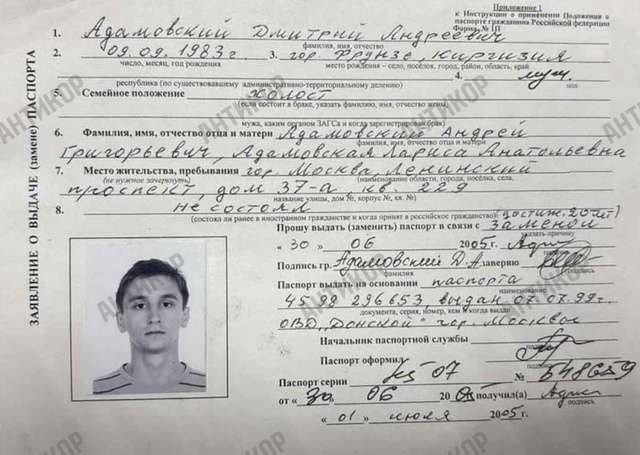 Приложение 1
к Инструкции о применении Положения о
паспорте гражданина Российской федерации
Форма № 1П
ЗАЯВЛЕНИЕ О ВЫДАЧЕ (замене) ПАСПОРТА
1. Адамовский Дмитрий Андреевич
фамилия, имя, отчество
2. 09.09.1983г. 3. гор. Фрунзе, Киргизия
число, месяц, год рождения место рождения – село, посёлок, город, район, область, край
4. муж.
республика (по существовавшему административно-территориальному делению) пол
5. Семейное положение холост
(если состоит в браке, указать фамилию, имя, отчество жены,
мужа, каким органом ЗАГСа и когда зарегистрирован брак)
6. Фамилия, имя, отчество отца и матери Адамовский Андрей
фамилия, имя, отчество
Григорьевич, Адамовская Лариса Анатольевна
7. Место жительства, пребывания гор. Москва, Ленинский
(не нужное зачеркнуть) (наименование области, города, посёлка, села,
проспект, дом 37-а, кв. 229
название улицы, дом №, корпус №, кв. №)
8. не состоял
(состоял ли ранее в иностранном гражданстве и когда принят в российское гражданство) (достиж. 20 лет)
Прошу выдать (заменить) паспорт в связи с заменой
указать причину
« 30 » 06 2005г.
Подпись гр. Адамовский Д.А заверяю
фамилия подпись
Паспорт выдать на основании паспорта
наименование
4599 296653 выдан 07.07.99г.
документа, серия, номер, кем и когда выдан
ОВД „Донской" гор. Москвы
Начальник паспортной службы
Паспорт оформил
подпись
Паспорт серии 07 № 548659
от « 30 » 06 2005 получил(а)
подпись
« 01 » июля 2005г.
АНТИКОР